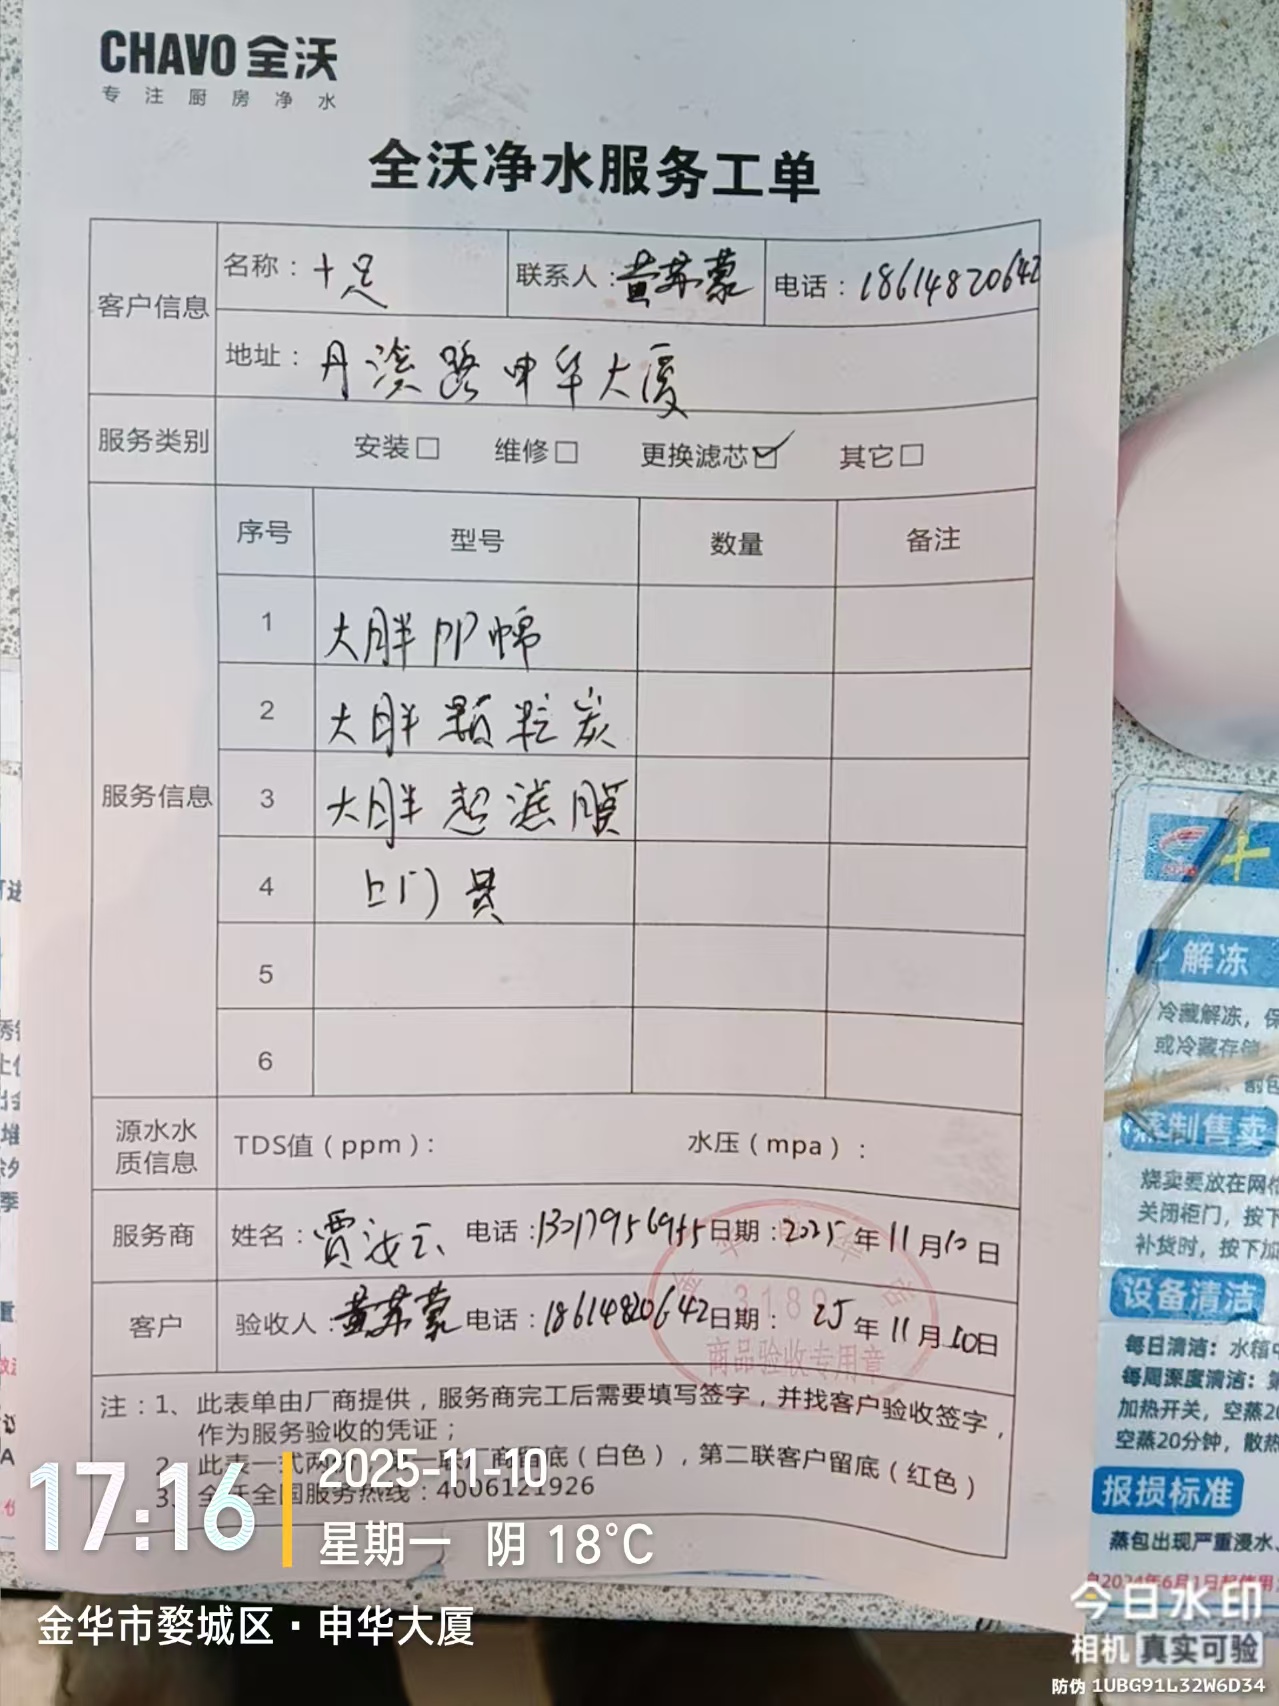 CHAVO 全沃
专注厨房净水
全沃净水服务工单
客户信息
名称：十足 联系人：黄苏蒙 电话：18614820642
地址：丹溪路申华大厦
服务类别 安装□ 维修□ 更换滤芯☑ 其它□
服务信息
序号 型号 数量 备注
1 大胖PP棉
2 大胖颗粒炭
3 大胖超滤膜
4 上门费
5
6
源水水
质信息
TDS值（ppm）： 水压（mpa）：
服务商 姓名：贾汝云 电话：13017956955 日期：2025年11月10日
客户 验收人：黄苏蒙 电话：18614820642 日期：25年11月10日
3180
商品验收专用章
注：1、此表单由厂商提供，服务商完工后需要填写签字，并找客户验收签字，
作为服务验收的凭证；
2、此表一式两份，第一联厂商留底（白色），第二联客户留底（红色）
3、全沃全国服务热线：4006121926
17:16
2025-11-10
星期一 阴 18°C
金华市婺城区·申华大厦
解冻
冷藏解冻，保
或冷藏存储
蒸制售卖
烧卖要放在网格
关闭柜门，按下
补货时，按下加
设备清洁
每日清洁：水箱中
每周深度清洁：第
加热开关，空蒸20
空蒸20分钟，散热
报损标准
蒸包出现严重浸水、
自2024年6月1日起使用
今日水印
相机 真实可验
防伪 1UBG91L32W6D34